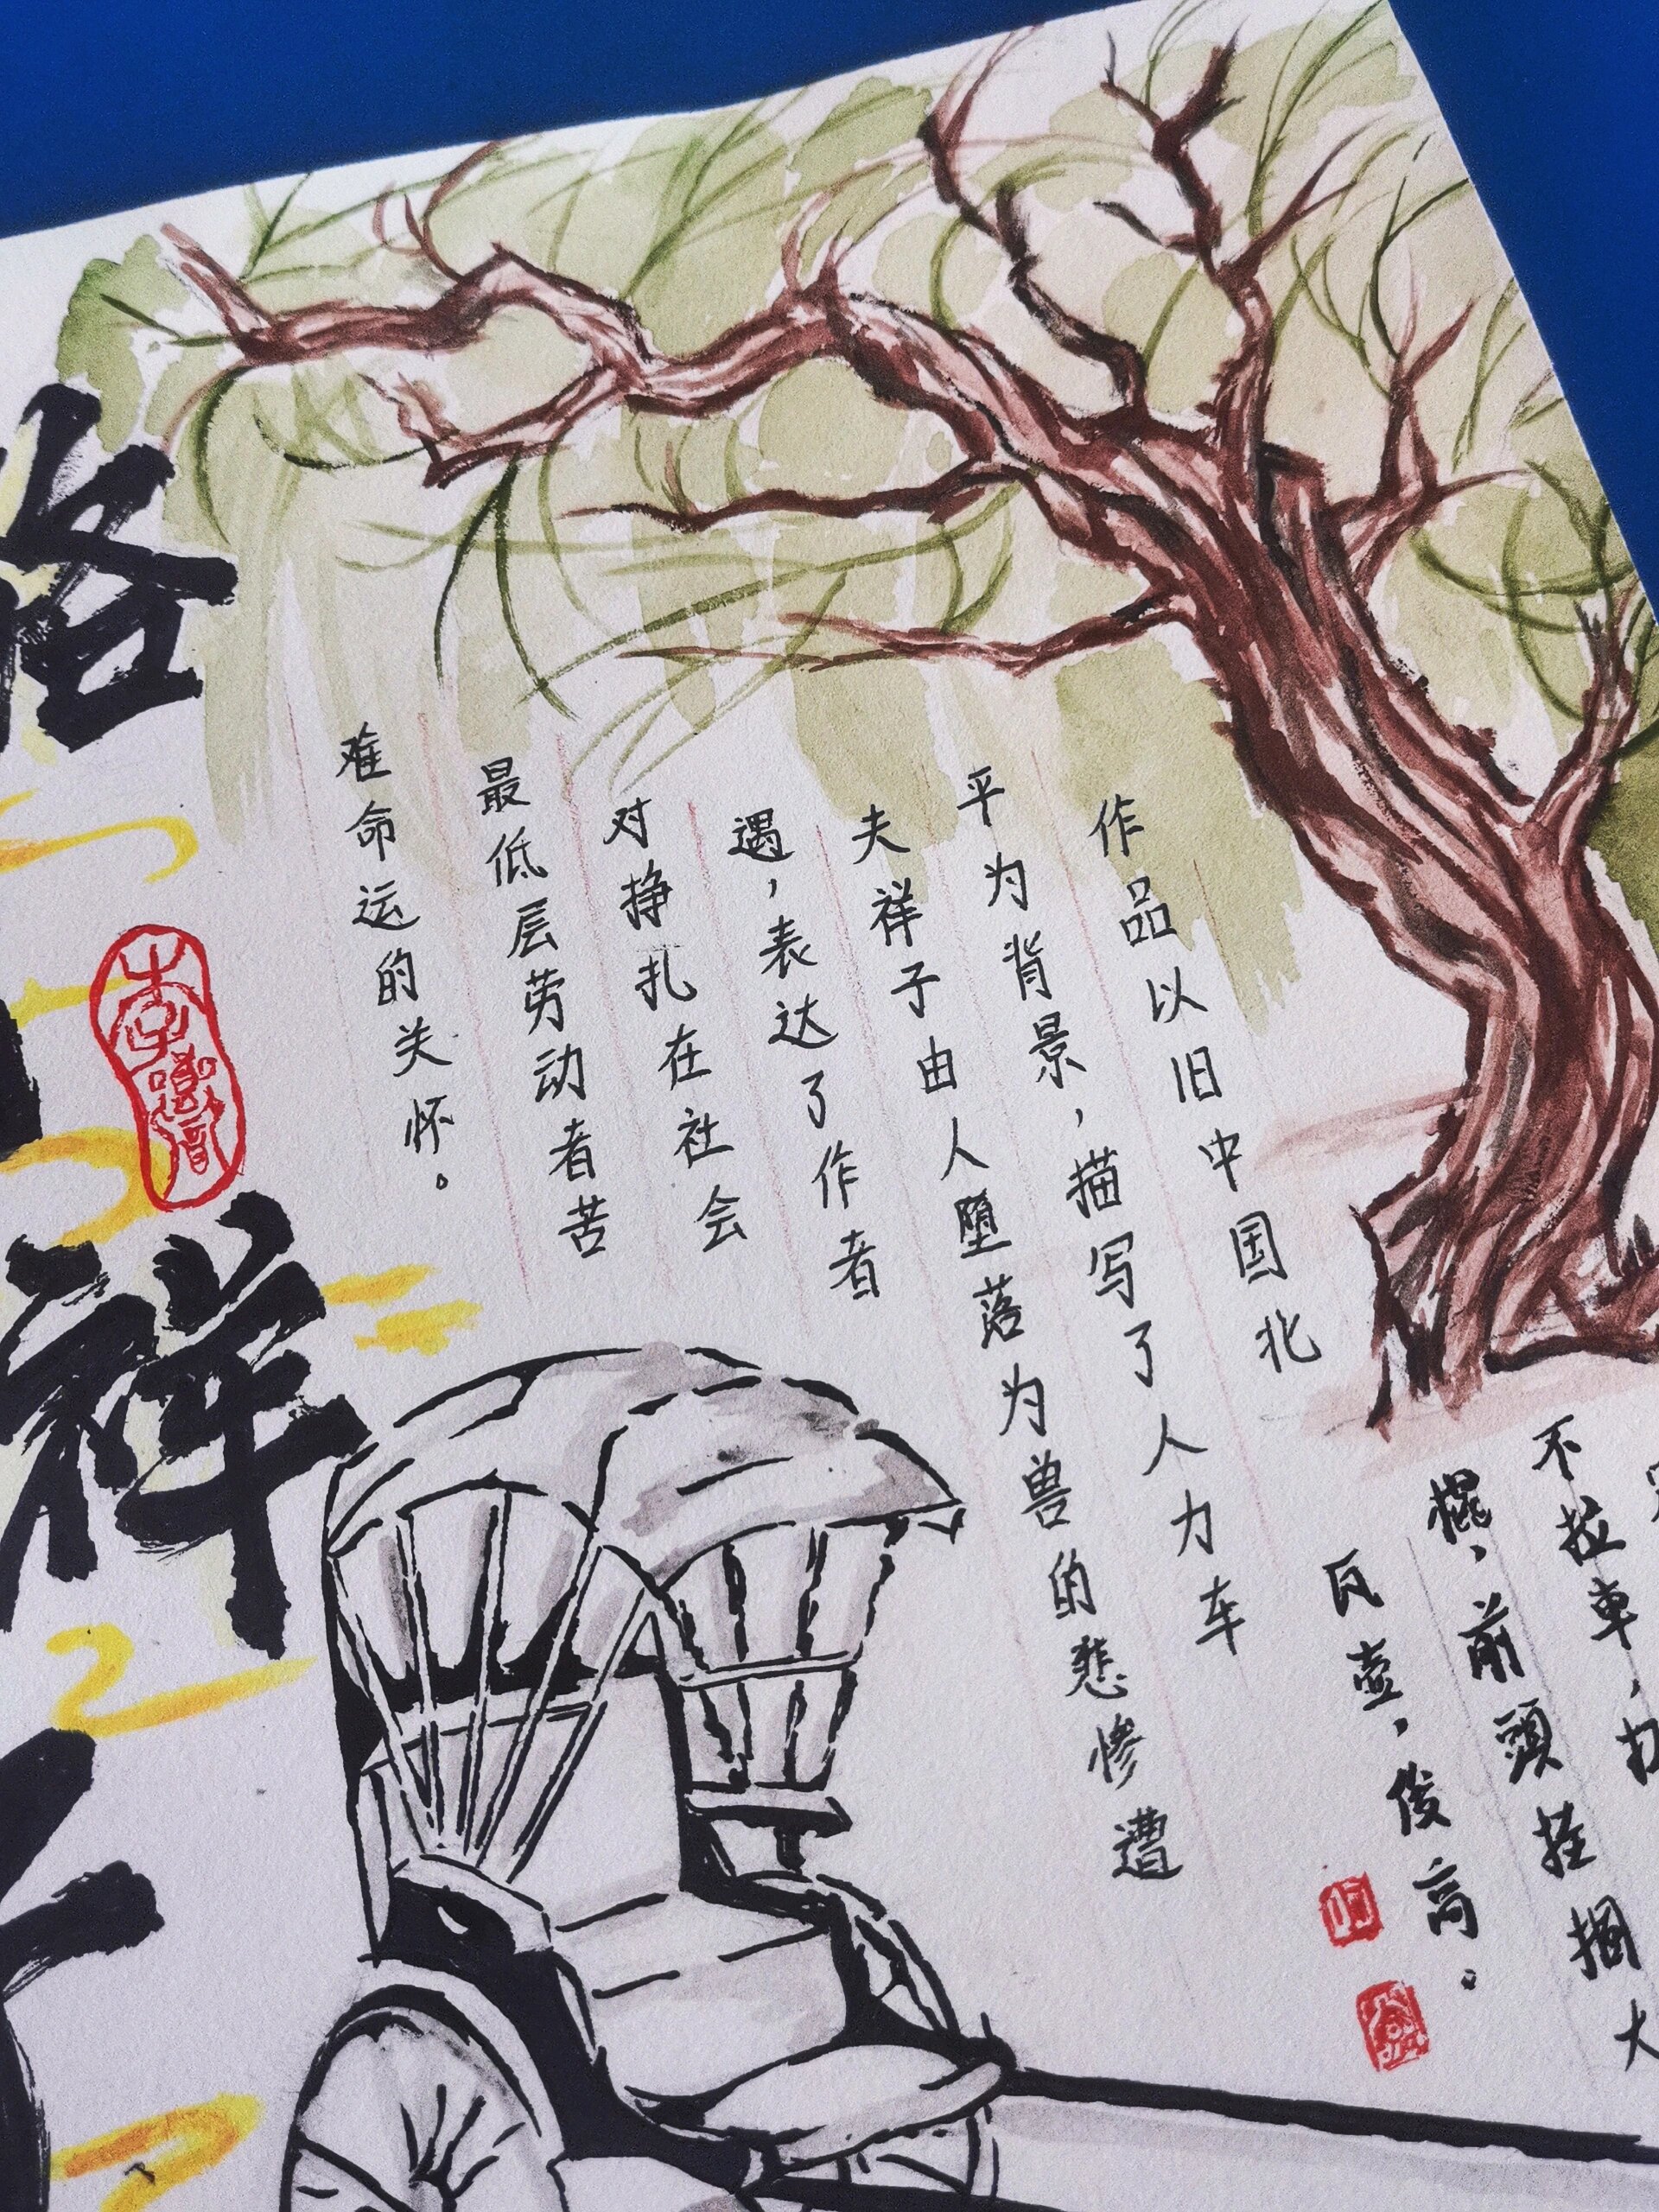 作品以旧中国北
平为背景，描写了人力车
夫祥子由人堕落为兽的悲惨遭
遇，表达了作者
对挣扎在社会
最低层劳动者苦
难命运的关怀。
骆
祥
不拉車，
擺，前頭挂捆大
瓦壺，俊高。